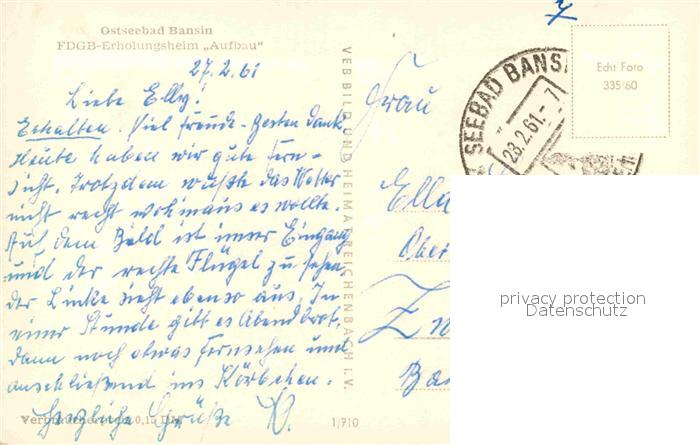 Ostseebad Bansin
FDGB-Erholungsheim „Aufbau"
27.2.61
Liebe Elly!
Erhalten. Viel Freude - Besten Dank
Heute haben wir gute Fern-
sicht. Trotzdem wußte das Wetter
nicht recht wohinaus es wollte.
Auf dem Bild ist unser Eingang
und der rechte Flügel zu sehen.
der Linke sieht ebenso aus. In
einer Stunde gibt es Abendbrot.
dann noch etwas Fernsehen und
anschließend ins Körbchen.
Herzliche Grüße
Verbraucherpreis 0,15 DM
1/710
VEB BILD UND HEIMAT REICHENBACH I. V.
SEEBAD BANSIN
28.2.61.-7
Echt Foto
335/60
Frau
Elly
Ober
Ba
privacy protection
Datenschutz